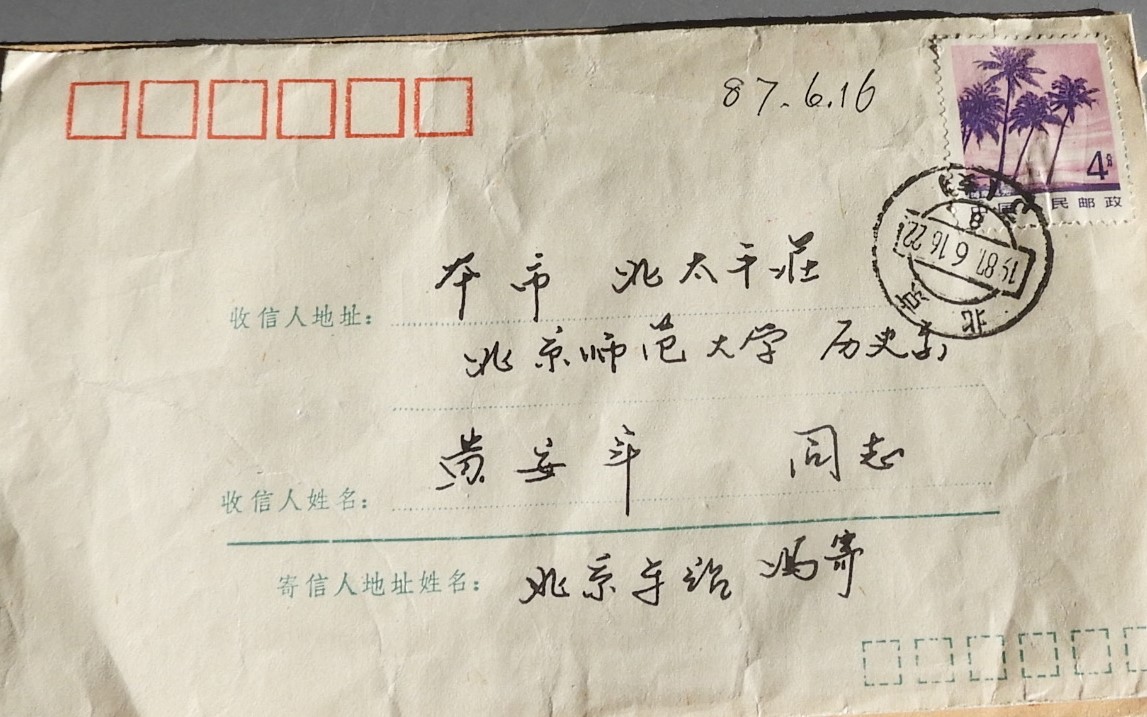 87.6.16
4分
民邮政
1987.6.16.22
北京
收信人地址: 本市 北太平庄
北京师范大学 历史系
收信人姓名: 黄安年 同志
寄信人地址姓名: 北京 冯寄